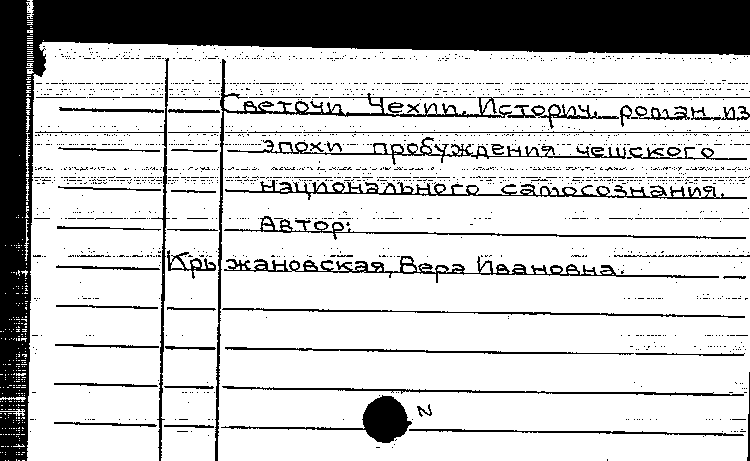 Светочи Чехии. Историч. роман из
эпохи пробуждения чешского
национального самосознания.
Автор:
Крыжановская, Вера Ивановна.
N